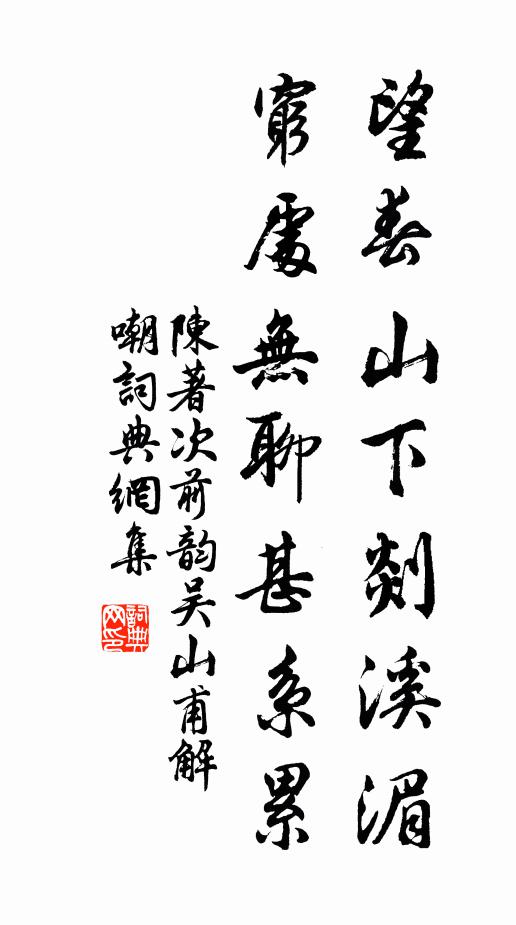 望春山下剡溪湄
窮處無聊甚系累
陳著次前韵吴山甫解
嘲詞典網集
詞典網印